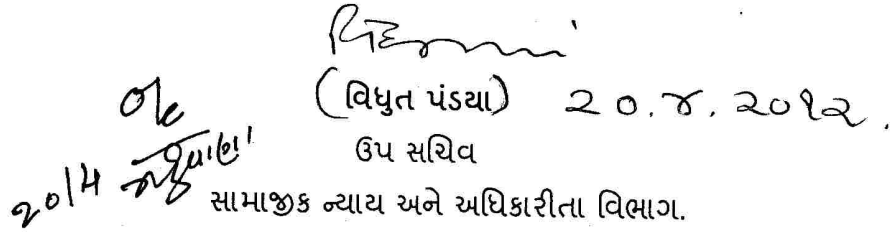 (વિધુત પંડયા) ૨૦.૪.૨૦૧૨.
ઉપ સચિવ
સામાજીક ન્યાય અને અધિકારીતા વિભાગ.